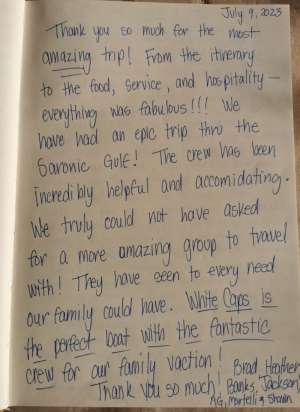 July 9, 2023
Thank you so much for the most
amazing trip! From the itinerary
to the food, service, and hospitality –
everything was fabulous!!! We
have had an epic trip thru the
Saronic Gulf! The crew has been
incredibly helpful and accomidating.
We truly could not have asked
for a more amazing group to travel
with! They have seen to every need
our family could have. White Caps is
the perfect boat with the fantastic
crew for our family vaction!
Thank you so much!
Brad, Heather
Banks, Jackson
AG, Martelli & Shawn